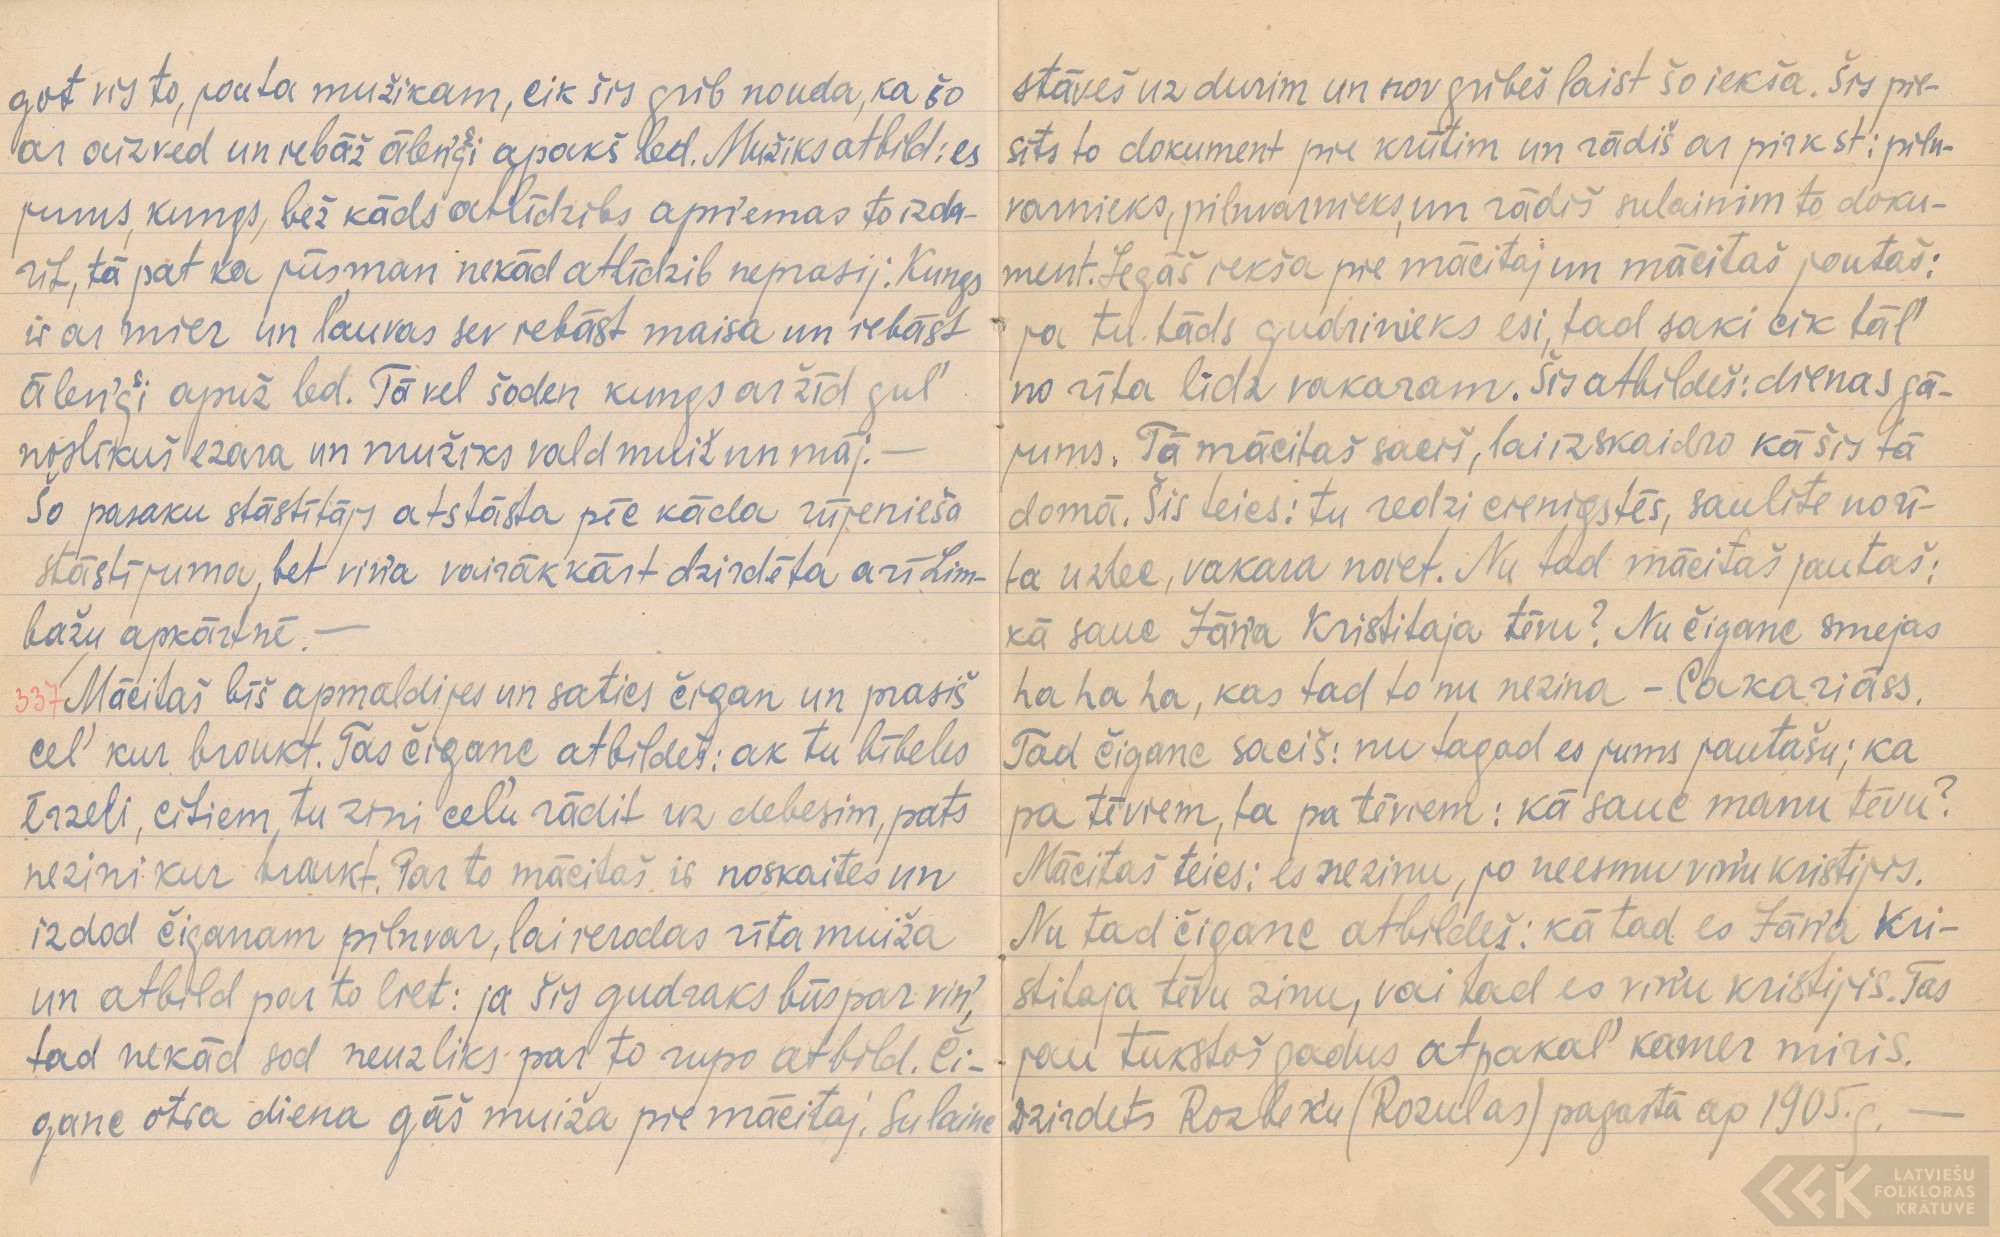 got vis to, jouta mužikam, cik šis grib nouda, ka šo
ar aizved un iebāž āleņģi apakš led. Mužiks atbild: es
jums, kungs, bež kāds atlīdzibs apņemas to izda-
rīt, tā pat ka jūs man nekād atlīdzib neprasij. Kungs
ir ar mier un ļauvas sev iebāst maisa un iebāst
āleņģi apuž led. Tā vel šoden kungs ar žīd guļ
noslīkuš ezara un mužiks vald muiž un māj. —
Šo pasaku stāstītājs atstāsta pēc kāda rūjenieša
stāstījuma, bet viņa vairākkārt dzirdēta arī Lim-
bažu apkārtnē. —
337 Mācitaš bīš apmaldijes un saties čigan un prasiš
ceļ kur broukt. Tas čigane atbildeš: ak tu bībeles
ērzeli, citiem tu zini ceļu rādit uz debesim, pats
nezini kur braukt. Par to mācitaš ir noskaites un
izdod čiganam pilnvar, lai ierodas rīta muiža
un atbild par to liet: ja šis gudraks būs par viņ,
tad nekād sod neuzliks par to rupo atbild. Či-
gane otra diena gāš muiža pie mācitaj. Sulaine
stāveš uz durim un nov gribeš laist šo iekša. Šis pie-
sits to dokument pie krūtim un rādiš ar pirkst: piln-
varnieks, pilnvarnieks, un rādiš sulainim to doku-
ment. Iegāš iekša pie mācitaj un mācitaš joutaš:
ja tu tāds gudrinieks esi, tad saki cik tāļ
no rīta līdz vakaram. Šis atbildeš: dienas gā-
jums. Tā mācitaš saciš, lai izskaidro kā šis tā
domā. Šis teics: tu redzi cienigstēs, saulite no rī-
ta uzlec, vakara noiet. Nu tad mācitaš jautaš:
kā sauc Jāņa Kristitaja tēvu? Nu čigane smejas
ha ha ha, kas tad to nu nezina – Cakariāss.
Tad čigane saciš: nu tagad es jums jautašu; ka
pa tēviem, ta pa tēviem: kā sauc manu tēvu?
Mācitaš teics: es nezinu, jo neesmu viņu kristijis.
Nu tad čigane atbildeš: kā tad es Jāņa Kri-
stitaja tēvu zinu, vai tad es viņu kristijis. Tas
jau tukstoš gadus atpakaļ kamer miris.
Dzirdets Rozbeķu (Rozulas) pagastā ap 1905. g. —
LATVIEŠU
FOLKLORAS
KRĀTUVE